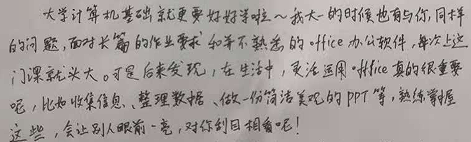 大学计算机基础就更要好好学啦~我大一的时候也有与你同样
的问题,面对长篇的作业要求和并不熟悉的office办公软件,每次上这
门课就头大。可是后来发现,在生活中,灵活运用office真的很重要
呢,比如收集信息、整理数据、做一份简洁美观的PPT等,熟练掌握
这些,会让别人眼前一亮,对你刮目相看呢!